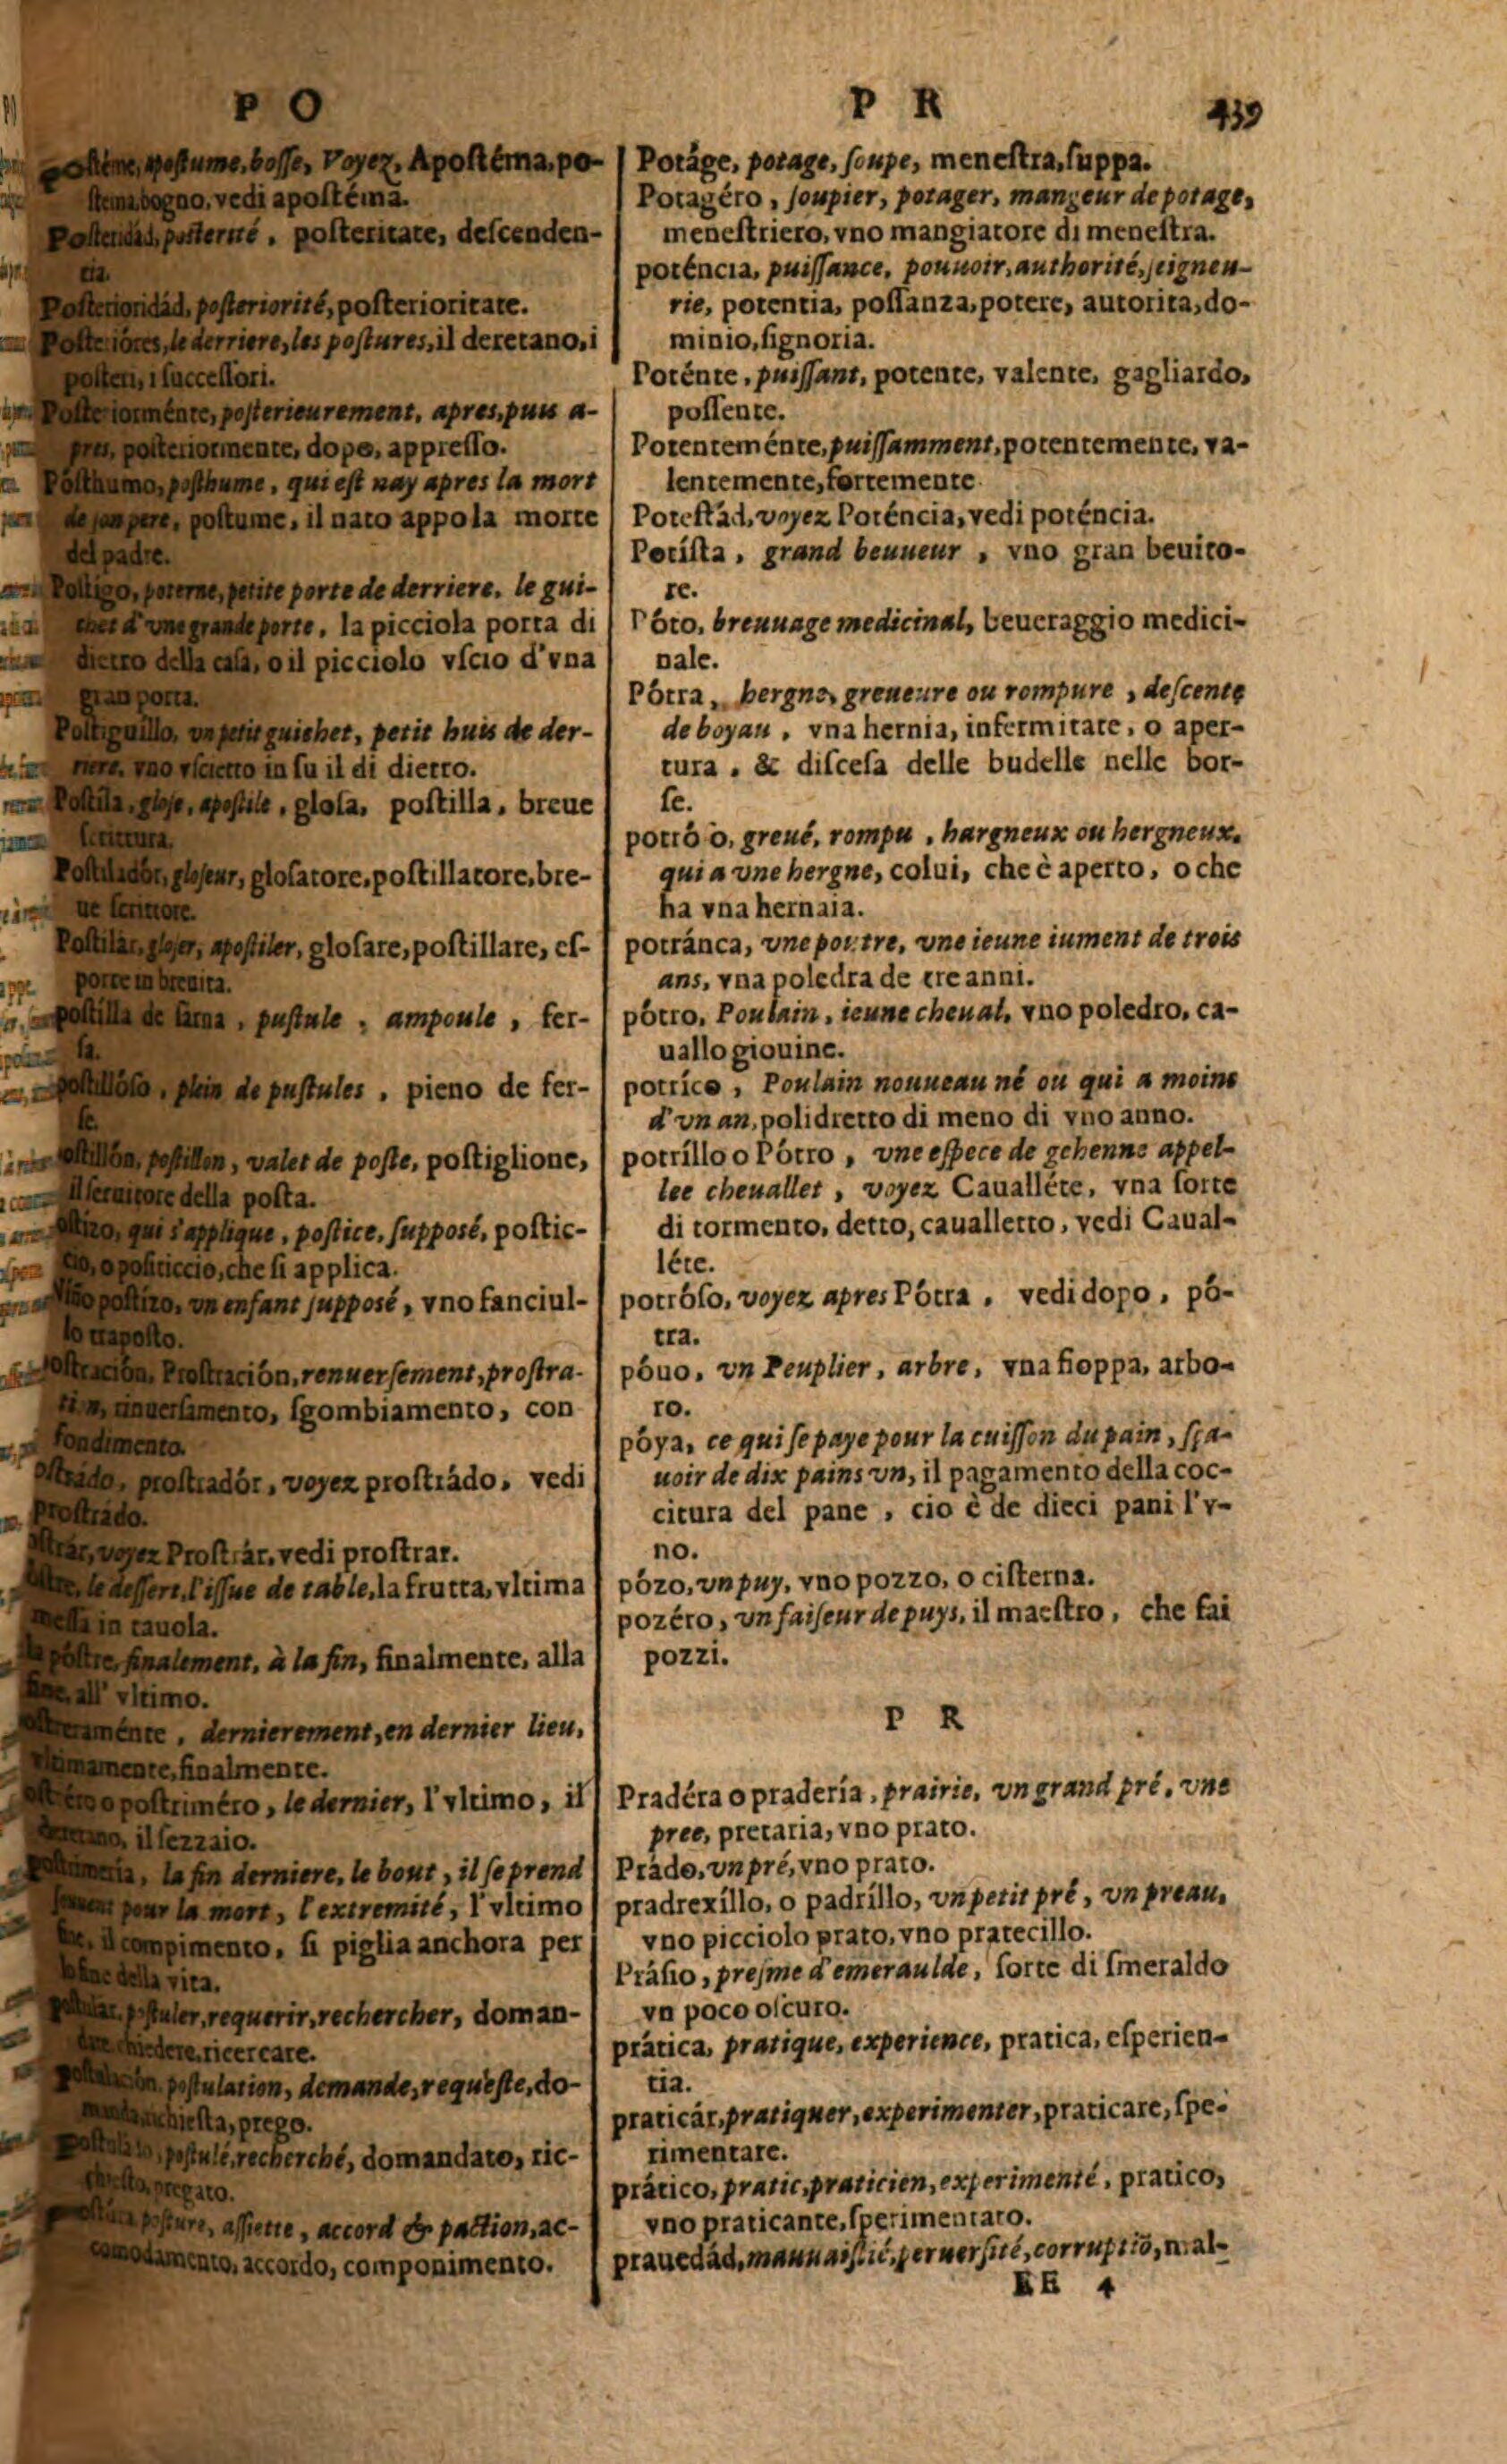 P O
Postéme, apostume, bosse, Voyez, Apostéma, po-
stema, bogno, vedi apostéma.
Posteridád, posterité, posteritate, descenden-
tia.
Posterioridád, posteriorité, posterioritate.
Posterióres, le derriere, les postures, il deretano, i
posteri, i successori.
Posteriorménte, posterieurement, apres, puis a-
pres, posteriormente, dopo, appresso.
Pósthumo, posthume, qui est nay apres la mort
de son pere, postume, il nato appo la morte
del padre.
Postigo, poterne, petite porte de derriere, le gui-
chet d'vne grande porte, la picciola porta di
dietro della casa, o il picciolo vscio d'vna
gran porta.
Postiguillo, vn petit guichet, petit huis de der-
riere, vno vscietto in su il di dietro.
Postila, glose, apostile, glosa, postilla, breue
scrittura.
Postiladór, gloseur, glosatore, postillatore, bre-
ue scrittore.
Postilár, gloser, apostiler, glosare, postillare, es-
porre in breuita.
postilla de sarna, pustule, ampoule, fer-
sa.
postillóso, plein de pustules, pieno de fer-
se.
ostillón, postillon, valet de poste, postiglione,
il seruitore della posta.
ostizo, qui s'applique, postice, supposé, postic-
cio, o positiccio, che si applica.
Niño postizo, vn enfant supposé, vno fanciul-
lo traposto.
ostración, Prostración, renuersement, prostra-
tion, rinuersamento, sgombiamento, con
fondimento.
ostrádo, prostradór, voyez prostrádo, vedi
prostrádo.
ostrár, voyez Prostrár, vedi prostrar.
ostre, le dessert, l'issue de table, la frutta, vltima
messa in tauola.
póstre, finalement, à la fin, finalmente, alla
fine, all' vltimo.
ostreraménte, dernierement, en dernier lieu,
vltimamente, finalmente.
ostréro o postriméro, le dernier, l'vltimo, il
deretano, il sezzaio.
Postrimería, la fin derniere, le bout, il se prend
souuent pour la mort, l'extremité, l'vltimo
fine, il compimento, si piglia anchora per
la fine della vita.
Postular, postuler, requerir, rechercher, doman-
dare, chiedere, ricercare.
Postulación, postulation, demande, requeste, do-
manda, richiesta, prego.
Postulato, postulé, recherché, domandato, ric-
chiesto, pregato.
postúra, posture, assiette, accord & paction, ac-
comodamento, accordo, componimento.
P R 439
Potáge, potage, soupe, menestra, suppa.
Potagéro, soupier, potager, mangeur de potage,
menestriero, vno mangiatore di menestra.
poténcia, puissance, pouuoir, authorité, seigneu-
rie, potentia, possanza, potere, autorita, do-
minio, signoria.
Poténte, puissant, potente, valente, gagliardo,
possente.
Potenteménte, puissamment, potentemente, va-
lentemente, fortemente.
Potestád, voyez Poténcia, vedi poténcia.
Potísta, grand beuueur, vno gran beuito-
re.
Póto, breuuage medicinal, beueraggio medici-
nale.
Pótra, hergne, greueure ou rompure, descente
de boyau, vna hernia, infermitate, o aper-
tura, & discesa delle budelle nelle bor-
se.
potró o, greué, rompu, hargneux ou hergneux,
qui a vne hergne, colui, che è aperto, o che
ha vna hernaia.
potránca, vne poutre, vne ieune iument de trois
ans, vna poledra de tre anni.
pótro, Poulain, ieune cheual, vno poledro, ca-
uallo giouine.
potríco, Poulain nouueau né ou qui a moins
d'vn an, polidretto di meno di vno anno.
potríllo o Pótro, vne espece de gehenne appel-
lee cheuallet, voyez Caualléte, vna sorte
di tormento, detto, caualletto, vedi Caual-
léte.
potróso, voyez apres Pótra, vedi dopo, pó-
tra.
póuo, vn Peuplier, arbre, vna fioppa, arbo-
ro.
póya, ce qui se paye pour la cuisson du pain, sça-
uoir de dix pains vn, il pagamento della coc-
citura del pane, cio è de dieci pani l'v-
no.
pózo, vn puy, vno pozzo, o cisterna.
pozéro, vn faiseur de puys, il maestro, che fai
pozzi.
P R
Pradéra o pradería, prairie, vn grand pré, vne
pree, prataria, vno prato.
Prádo, vn pré, vno prato.
pradrexíllo, o padríllo, vn petit pré, vn preau,
vno picciolo prato, vno pratecillo.
Prásio, presme d'emeraulde, sorte di smeraldo
vn poco oscuro.
prática, pratique, experience, pratica, esperien-
tia.
praticár, pratiquer, experimenter, praticare, spe-
rimentare.
prático, pratic, praticien, experimenté, pratico,
vno praticante, sperimentato.
prauedád, mauuaistié, peruersité, corruptiõ, mal-
EE 4